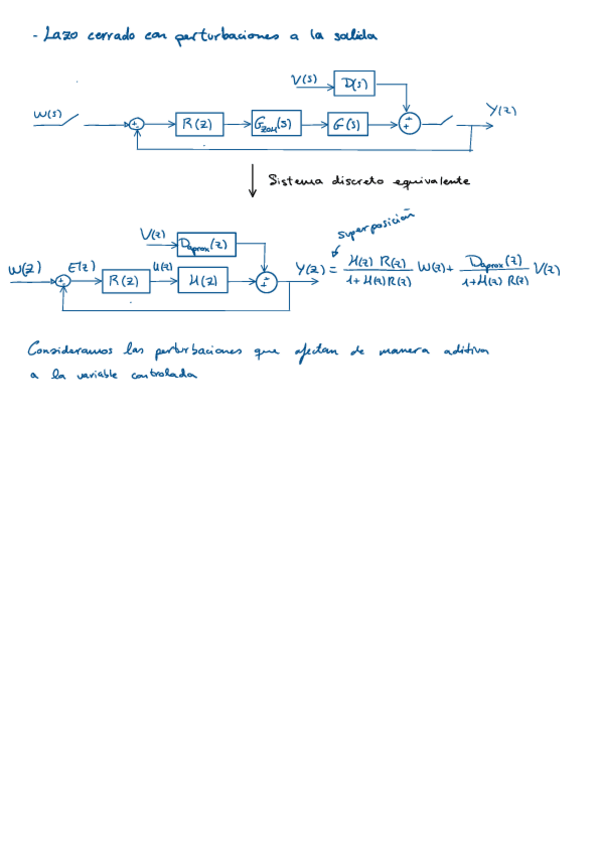 - Lazo cerrado con perturbaciones a la salida
V(s) D(s)
W(s) R(z) GZOH(s) G(s) Y(z)
Sistema discreto equivalente
superposición
V(z) Daprox(z)
W(z) E(z) R(z) U(z) H(z) Y(z) = H(z) R(z) / 1+H(z)R(z) W(z) + Daprox(z) / 1+H(z) R(z) V(z)
Consideramos las perturbaciones que afectan de manera aditiva
a la variable controlada